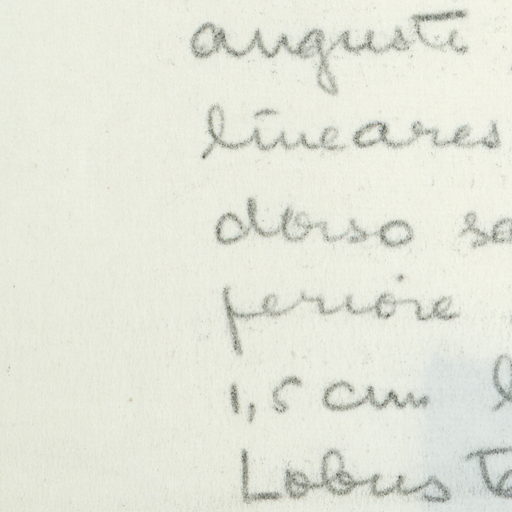 angusti
lineares
dorso
periore
1,5 cm
Lobus